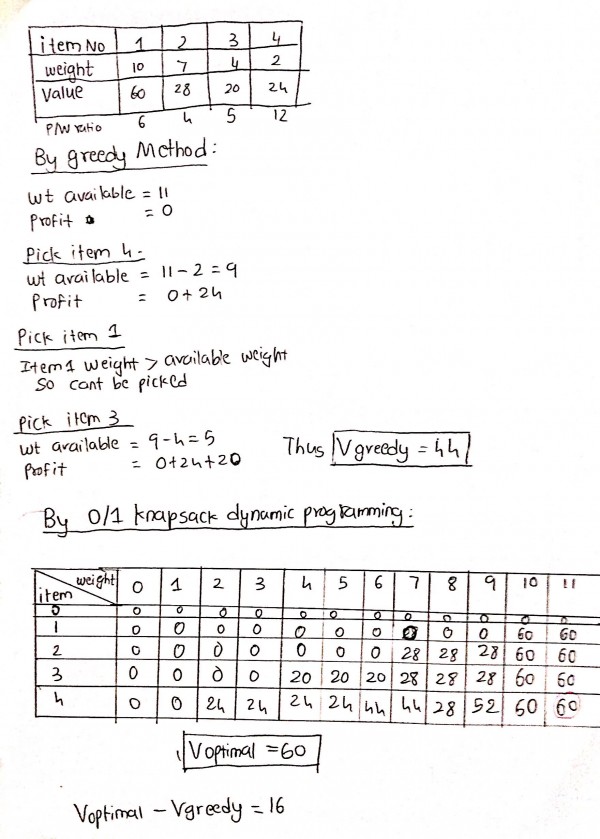 item No 1 2 3 4
weight 10 7 4 2
Value 60 28 20 24
P/W ratio 6 4 5 12
By greedy Method:
wt available = 11
Profit = 0
Pick item 4 -
wt available = 11 - 2 = 9
Profit = 0 + 24
Pick item 1
Item 1 weight > available weight
So cant be picked
Pick item 3
wt available = 9 - 4 = 5
Profit = 0+24+20
Thus Vgreedy = 44
By 0/1 knapsack dynamic programming:
item weight 0 1 2 3 4 5 6 7 8 9 10 11
0 0 0 0 0 0 0 0 0 0 0 0 0
1 0 0 0 0 0 0 0 0 0 0 60 60
2 0 0 0 0 0 0 0 28 28 28 60 60
3 0 0 0 0 20 20 20 28 28 28 60 60
4 0 0 24 24 24 24 44 44 28 52 60 60
Voptimal = 60
Voptimal - Vgreedy = 16